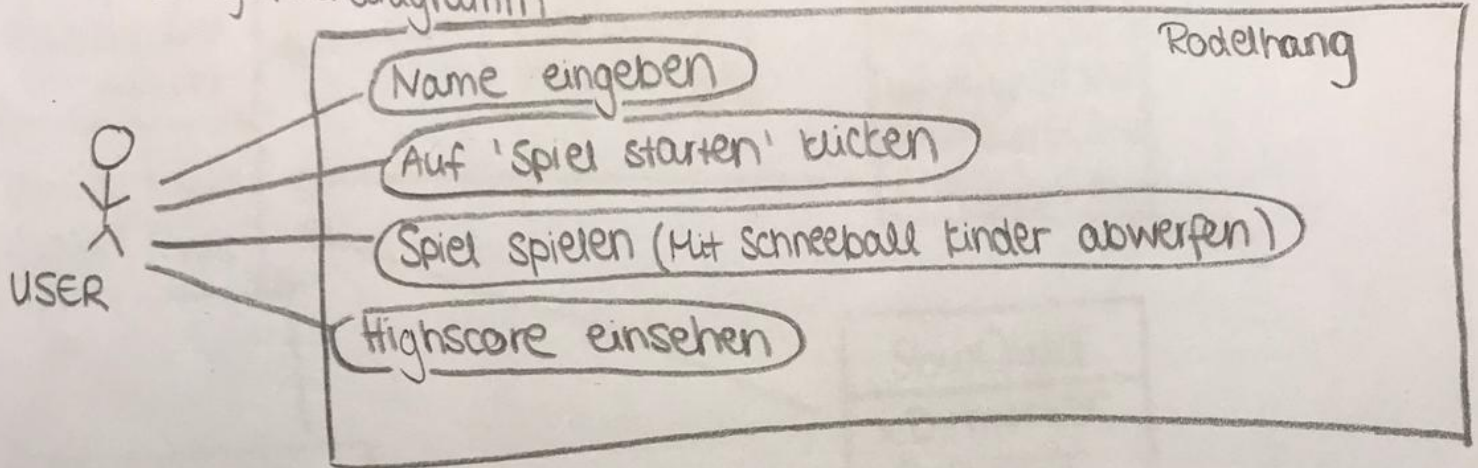 Rodelhang
Name eingeben
Auf 'Spiel starten' klicken
Spiel spielen (Mit Schneeball Kinder abwerfen)
Highscore einsehen
USER